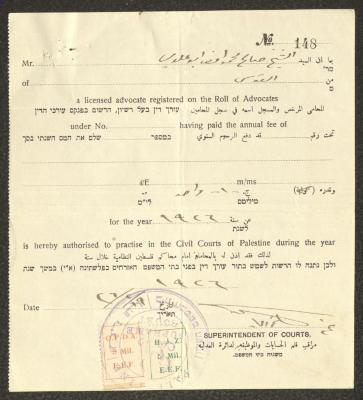 No. 148
Mr. الشيخ صالح محمد افندي بما ان السيد
מר
of القدس من
מ
a licensed advocate registered on the Roll of Advocates
المحامي المرخص والمسجل اسمه في سجل المحامين עורך דין בעל רשיון, הרשום בפנקס עורכי הדין
under No. having paid the annual fee of
تحت رقم قد دفع الرسوم السنوي במספר שלם את המס השנתי בסך
£E m/ms
وقدره واحد
לי״מ מיליםם
for the year ١٩٢٦ عن سنة
לשנת
is hereby authorised to practise in the Civil Courts of Palestine during the year
لذلك فقد اذن له بالمحاماة امام محاكم فلسطين النظامية خلال سنة
ולכן נתנה לו הרשות לשמש בתור עורך דין בפני בתי המשפט האזרחים בפלשתינה (א״י) במשך שנת
١٩٢٦
Date
תאריך
SUPERINTENDENT OF COURTS.
مراقب قلم الحسابات والموظفين لدائرة العدلية
משגיח בתי המשפט.
O.P.D.A. H.J.Z.
5 MIL. 5 MIL.
E.E.F. E.E.F.